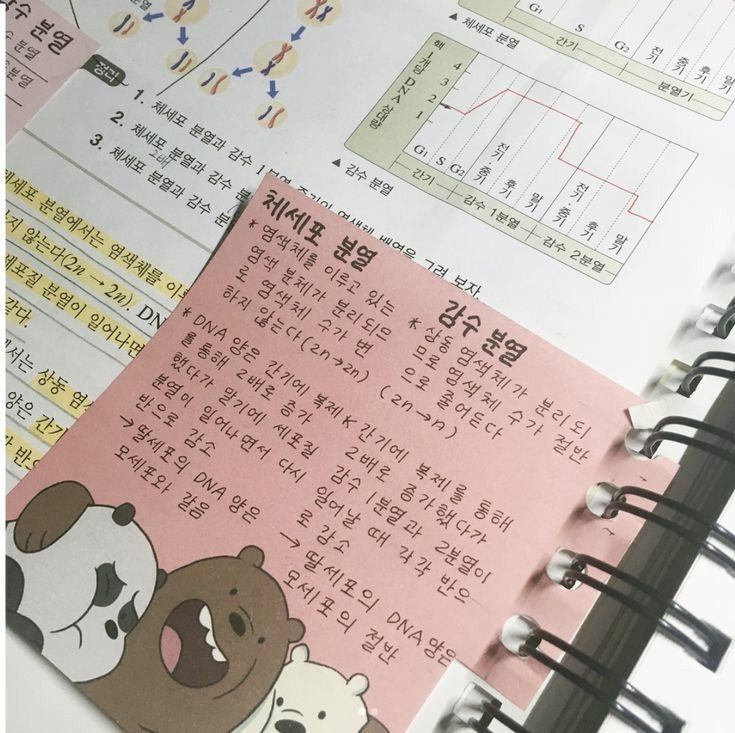 감수 분열
분열
분열
분열
정리
1. 체세포 분열과 감수 1
2. 체세포 분열과 감수
2배
3. 체세포 분열과 감수 분
체세포 분열에서는 염색체를 이루
지 않는다(2n → 2n). DN
세포질 분열이 일어나면
같다.
에서는 상동 염색
양은 간기
G₁
S
G₂
전기
중기
후기
말기
간기
분열기
▲ 체세포 분열
핵 1개당 DNA 상대량
4
3
2
1
G₁
S
G₂
전기
중기
후기
말기
전기·
중기
후기
말기
간기
감수 1분열
감수 2분열
▲ 감수 분열
염색체 배열을 그려 보자.
체세포 분열
* 염색체를 이루고 있는
염색 분체가 분리되므
로 염색체 수가 변
하지 않는다(2n→2n)
* DNA 양은 간기에 복제
를 통해 2배로 증가
했다가 말기에 세포질
분열이 일어나면서 다시
반으로 감소
→ 딸세포의 DNA 양은
모세포와 같음
감수 분열
* 상동 염색체가 분리되
므로 염색체 수가 절반
으로 줄어든다
(2n→n)
* 간기에 복제를 통해
2배로 증가했다가
감수 1분열과 2분열이
일어날 때 각각 반으
로 감소
→ 딸세포의 DNA양은
모세포의 절반